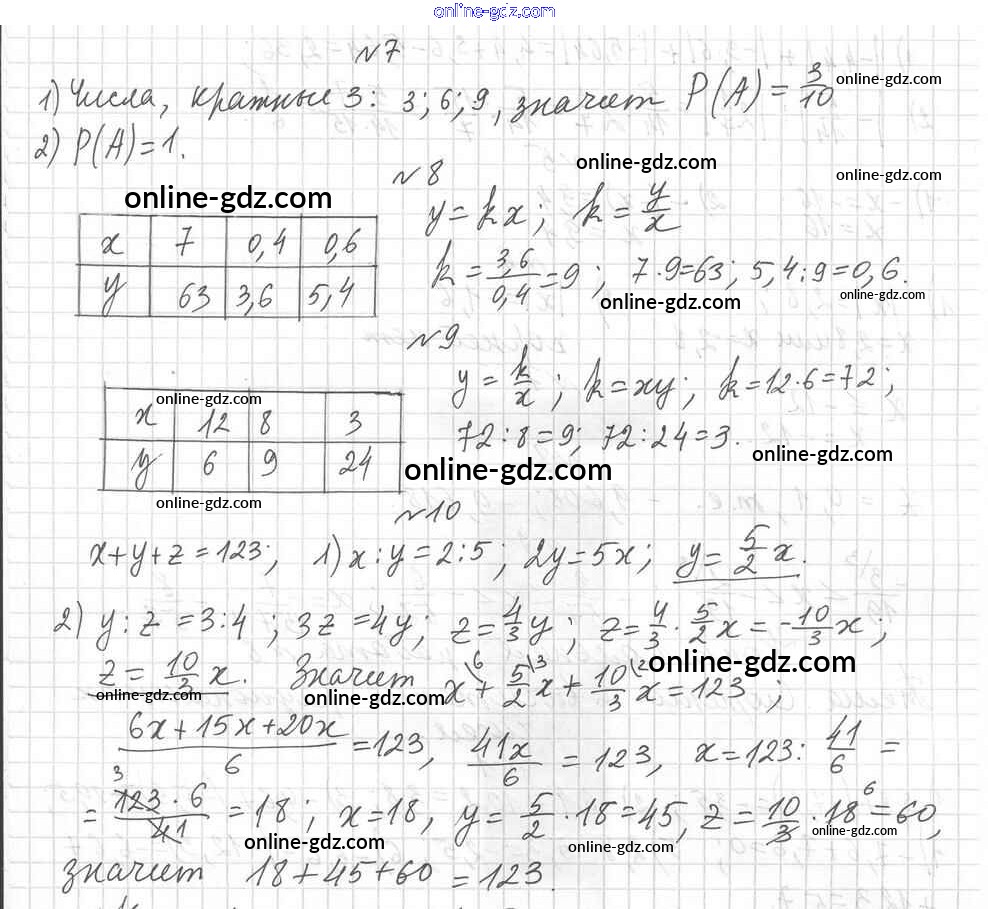 online-gdz.com
№7
1) Числа, кратные 3: 3; 6; 9, значит P(A) = 3/10
online-gdz.com
online-gdz.com
2) P(A) = 1.
online-gdz.com
online-gdz.com
№8
online-gdz.com
x 7 0,4 0,6
y 63 3,6 5,4
y = kx; k = y/x
k = 3,6/0,4 = 9; 7·9=63; 5,4:9=0,6.
online-gdz.com
online-gdz.com
№9
online-gdz.com
x 12 8 3
y 6 9 24
y = k/x; k = xy; k = 12·6 = 72;
72:8=9; 72:24=3.
online-gdz.com
online-gdz.com
online-gdz.com
№10
x+y+z=123; 1) x:y=2:5; 2y=5x; y = 5/2 x.
2) y:z=3:4; 3z=4y; z = 4/3 y; z = 4/3 · 5/2 x = -10/3 x;
online-gdz.com
z = 10/3 x. Значит x\6 + 5/2\3 x + 10/3\2 x = 123;
online-gdz.com
online-gdz.com
(6x+15x+20x)/6 = 123, 41x/6 = 123, x = 123 : 41/6 =
= 3 123·6/41 = 18; x=18, y = 5/2 · 18 = 45, z = 10/3 · 18 6 = 60,
online-gdz.com
online-gdz.com
online-gdz.com
значит 18+45+60 = 123.